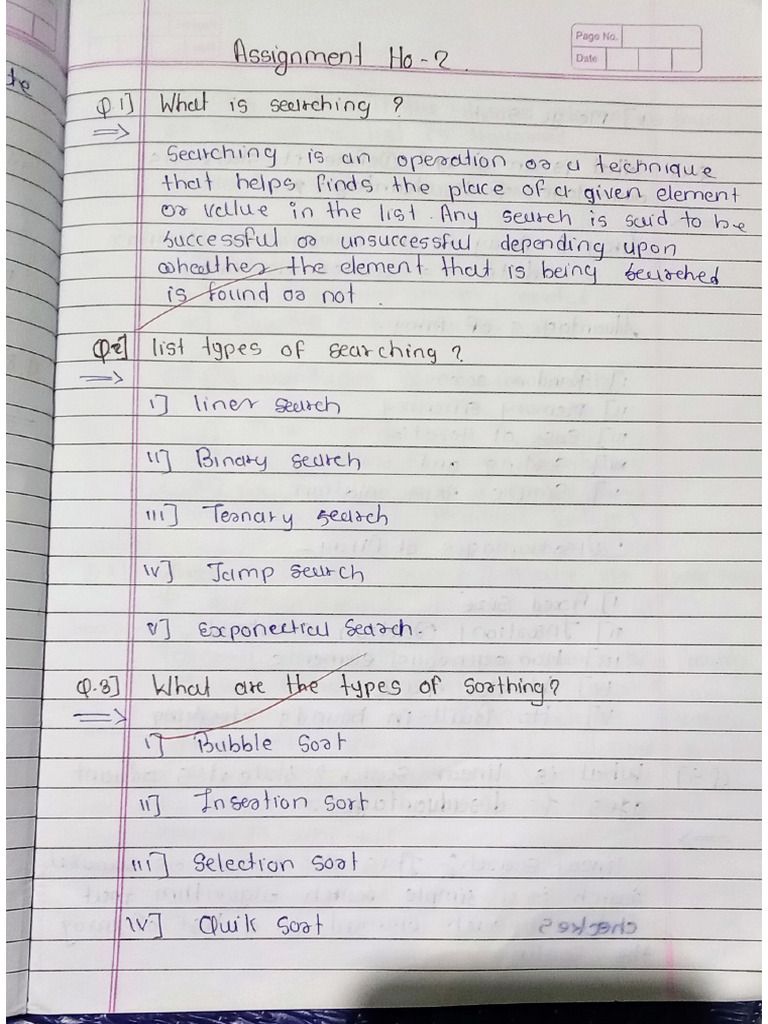 Page No.
Date
Assignment No-2.
Q.1] What is searching ?
Searching is an operation or a technique
that helps finds the place of a given element
or value in the list. Any search is said to be
successful or unsuccessful depending upon
wheather the element that is being searched
is found or not.
Q.2] list types of searching ?
I] liner search
II] Binary search
III] Ternary search
IV] Jump search
V] Exponectial Search.
Q.3] What are the types of sorthing?
I] Bubble sort
II] Insertion sort
III] Selection sort
IV] Quik sort